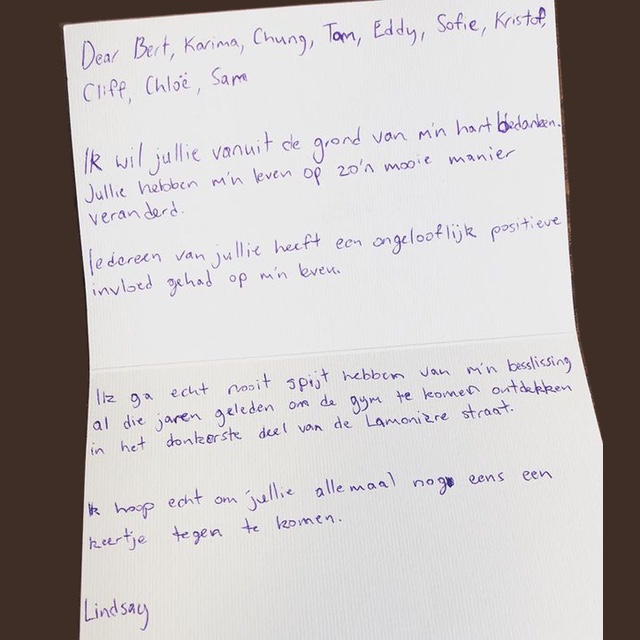 Dear Bert, Karima, Chung, Tom, Eddy, Sofie, Kristof,
Cliff, Chloë, Sam
Ik wil jullie vanuit de grond van m'n hart bedanken.
Jullie hebben m'n leven op zo'n mooie manier
veranderd.
Iedereen van jullie heeft een ongelooflijk positieve
invloed gehad op m'n leven.
Ik ga echt nooit spijt hebben van m'n besslissing
al die jaren geleden om de gym te komen ontdekken
in het donkerste deel van de Lamonière straat.
Ik hoop echt om jullie allemaal nog eens een
keertje tegen te komen.
Lindsay